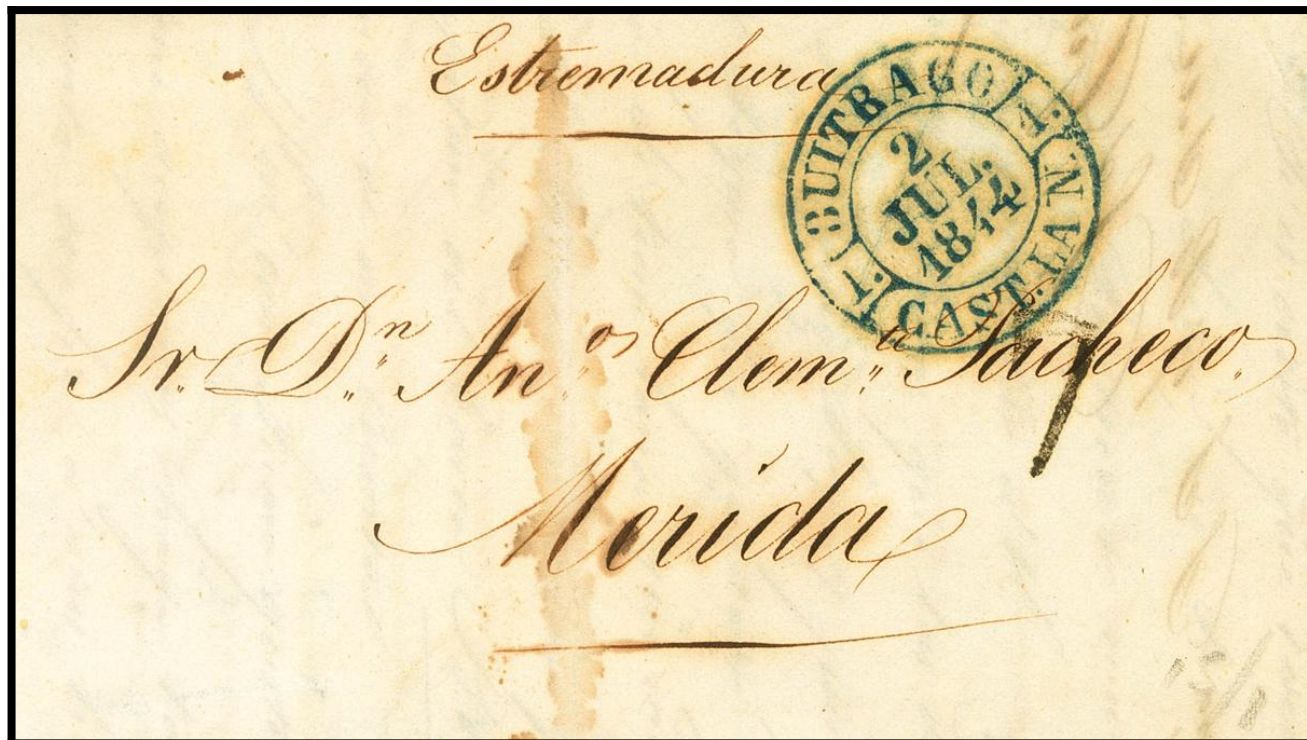 Estremadura
BUITRAGO
1.
2
JUL.
1844
1.
CAST.LA N
Sr. Dn. An.os Clem.te Pacheco.
Merida